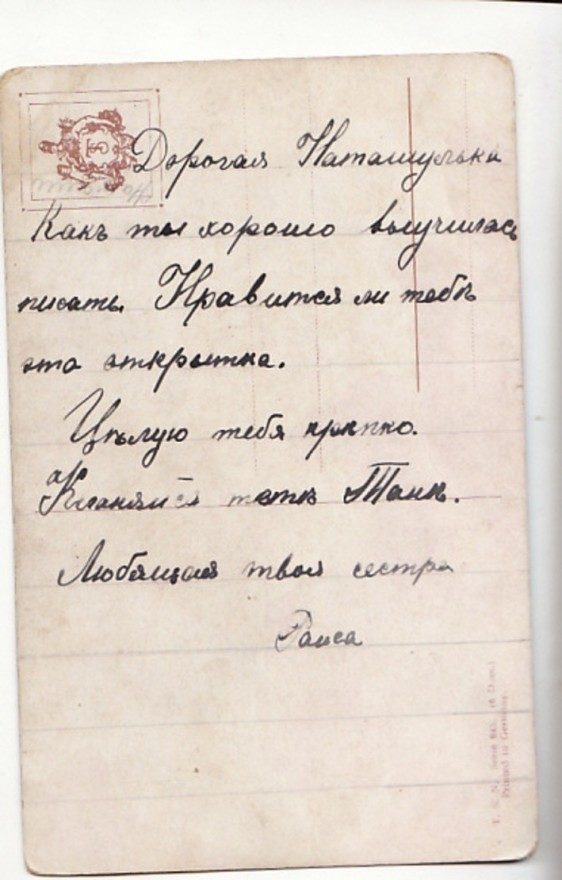 Дорогая Наташулька
Какъ ты хорошо выучилась
писать. Нравится ли тебѣ
эта открытка.
Цѣлую тебя крѣпко.
Кланяйся тетѣ Танѣ.
Любящая твоя сестра
Раиса
T. S. N. Serie
Printed in Germany